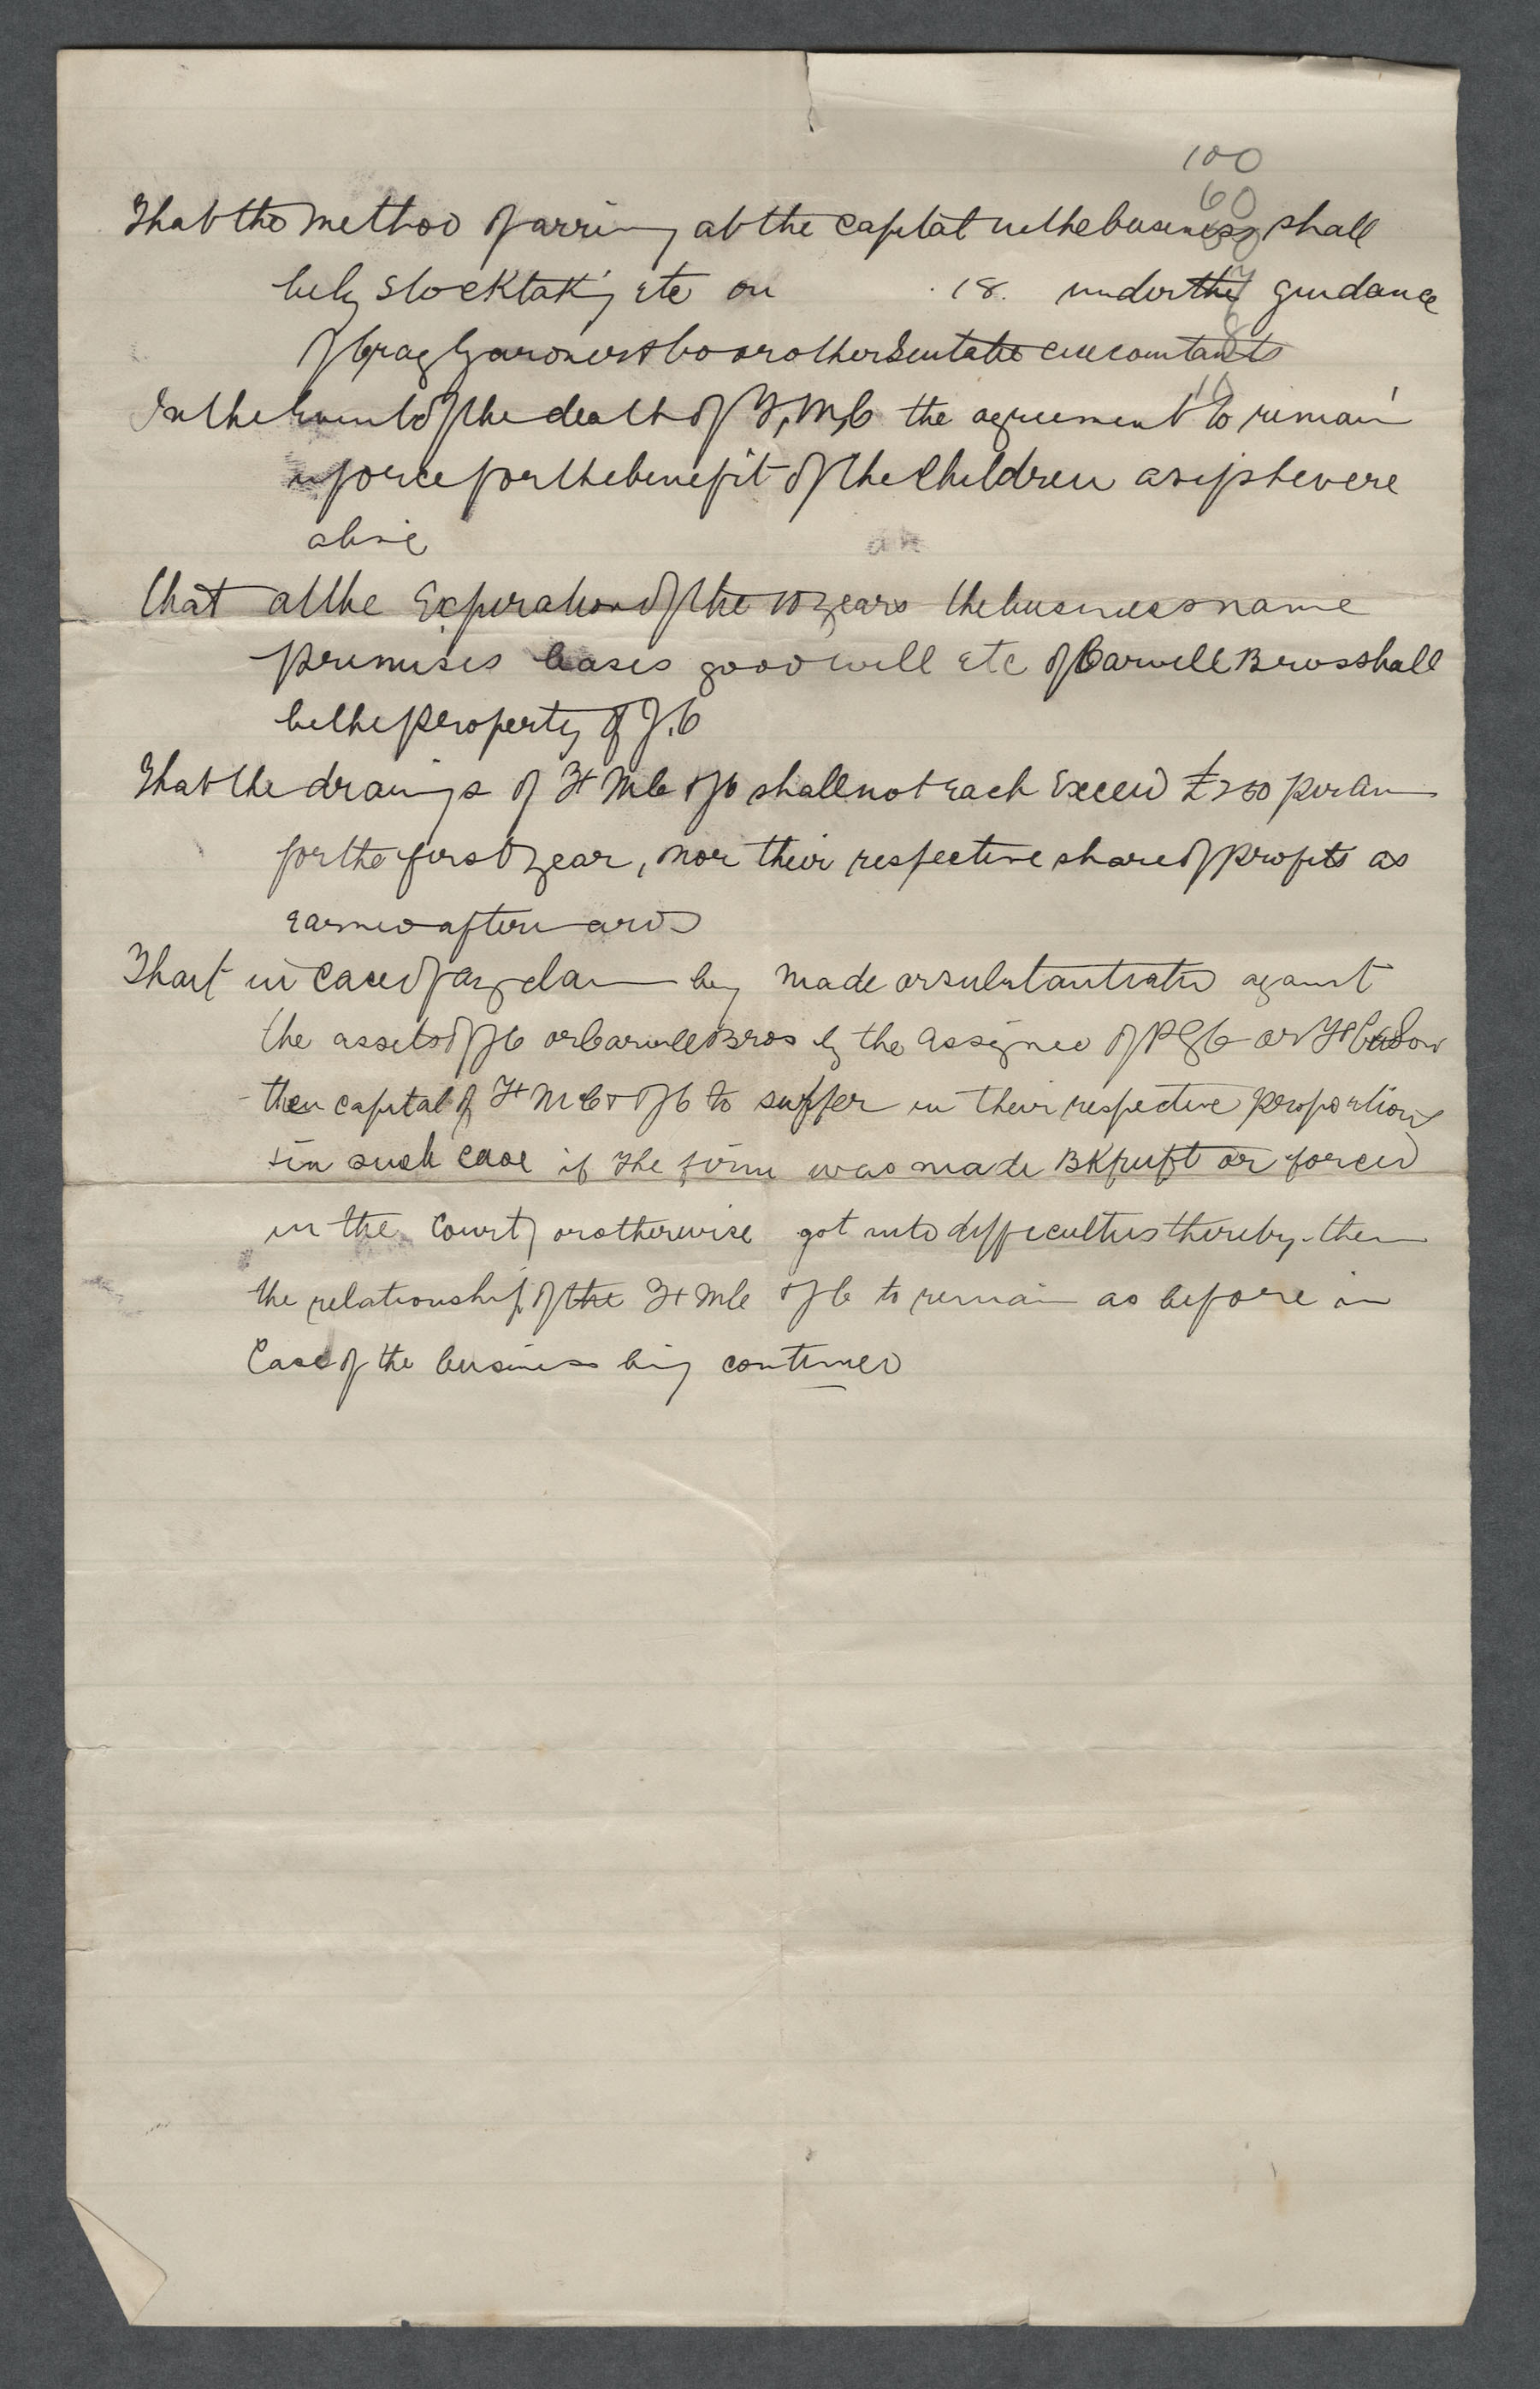 100
60
That the method of arriving at the capital in the business shall
be by stocktaking etc on 18. under the guidance
of Craig Gardner & Co or other suitable accountants
In the event of the death of H, M, C the agreement to remain
in force for the benefit of the children as if she were
alive
that at the Expiration of the 10 years the business name
premises leases goodwill etc of Carvill Bros shall
be the property of J. C
That the drawings of H M C & J C shall not each Exceed £250 per an
for the first year, nor their respective share of profits as
Earned afterwards
That in case of any claim being made or substantiated against
the assets of J C or Carvill Bros by the assignee of P G C or
then capital of H M C & J C to suffer in their respective proportions
& in such case if the firm was made BKrupt or forced
in the Court, or otherwise got into difficulties thereby. then
the relationship of the H M C & J C to remain as before in
Case of the business being continued